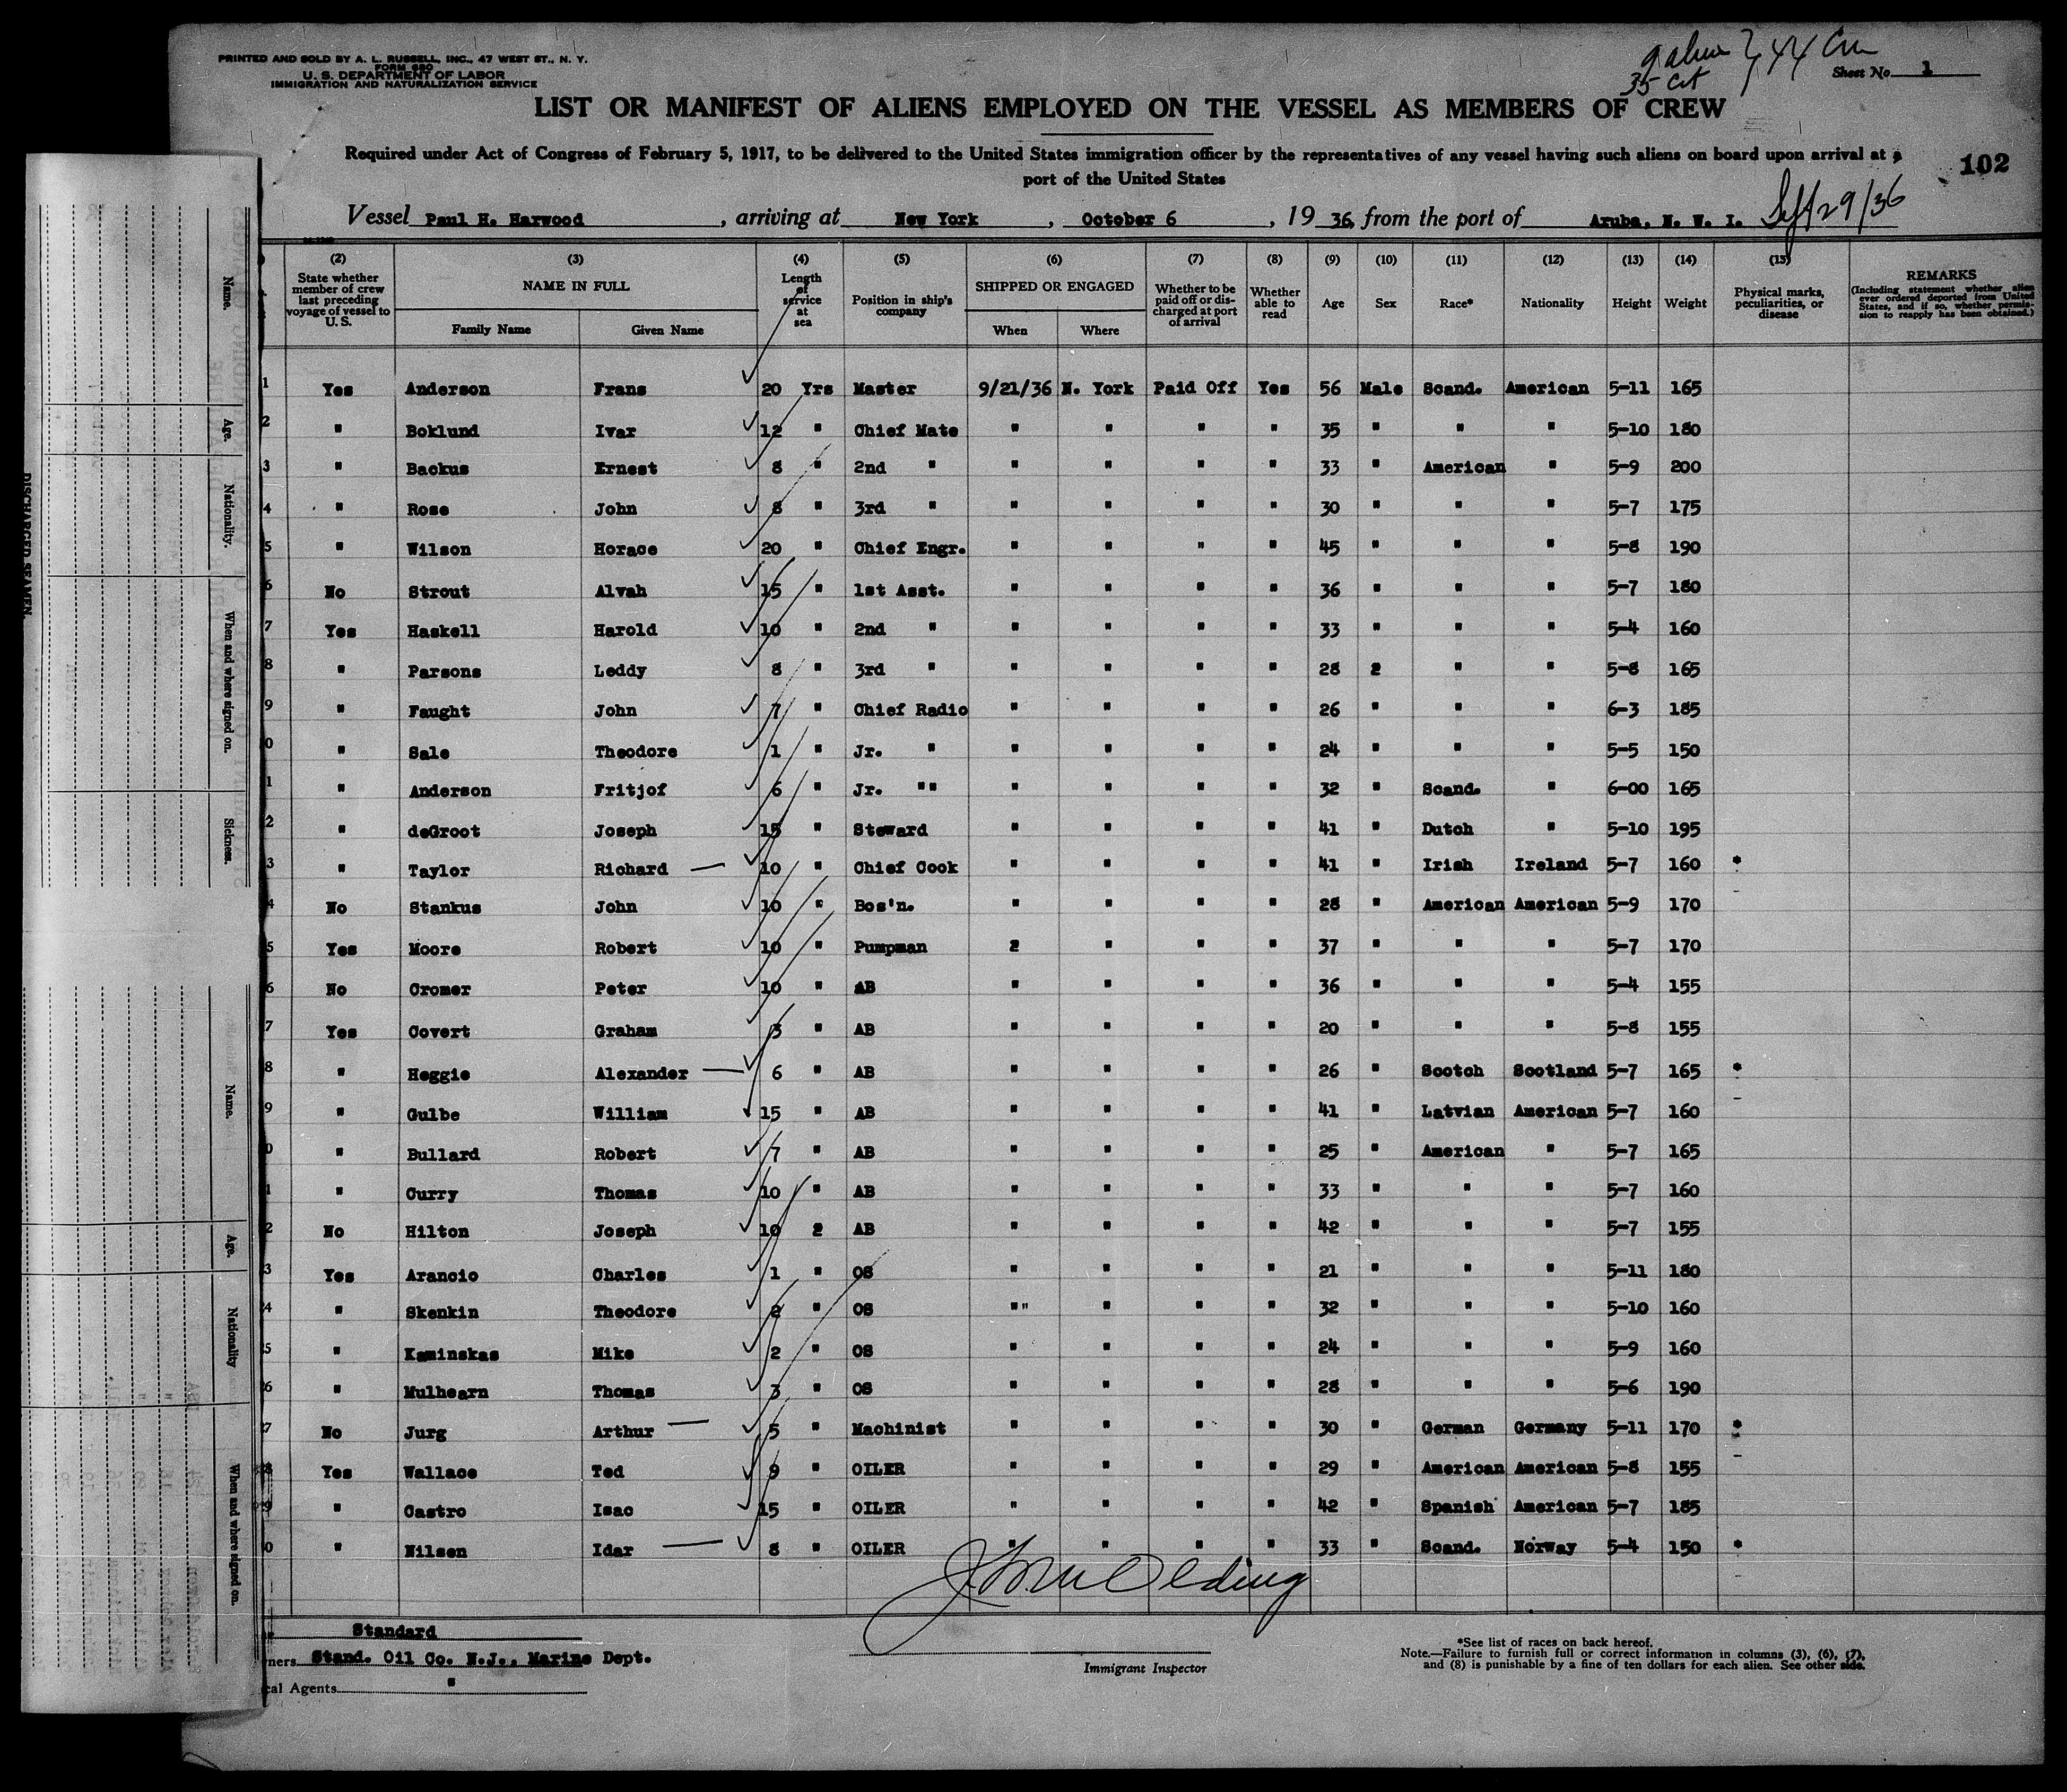 PRINTED AND SOLD BY A. L. RUSSELL, INC., 47 WEST ST., N. Y.
FORM 680
U. S. DEPARTMENT OF LABOR
IMMIGRATION AND NATURALIZATION SERVICE
9 alien } 44 Crew
35 cit
Sheet No. 1
LIST OR MANIFEST OF ALIENS EMPLOYED ON THE VESSEL AS MEMBERS OF CREW
Required under Act of Congress of February 5, 1917, to be delivered to the United States immigration officer by the representatives of any vessel having such aliens on board upon arrival at a
port of the United States
102
Vessel Paul H. Harwood, arriving at New York, October 6, 19 36, from the port of Aruba, N. W. I. Sept 29/36
(2) (3) (4) (5) (6) (7) (8) (9) (10) (11) (12) (13) (14) (15)
State whether member of crew last preceding voyage of vessel to U. S. | NAME IN FULL | Family Name | Given Name | Length of service at sea | Position in ship's company | SHIPPED OR ENGAGED | When | Where | Whether to be paid off or discharged at port of arrival | Whether able to read | Age | Sex | Race* | Nationality | Height | Weight | Physical marks, peculiarities, or disease | REMARKS (Including statement whether alien ever ordered deported from United States, and if so, whether permission to reapply has been obtained.)
1 Yes Anderson Frans 20 Yrs Master 9/21/36 N. York Paid Off Yes 56 Male Scand. American 5-11 165
2 " Boklund Ivar 12 " Chief Mate " " " " 35 " " " 5-10 180
3 " Backus Ernest 8 " 2nd " " " " " 33 " American " 5-9 200
4 " Rose John 8 " 3rd " " " " " 30 " " " 5-7 175
5 " Wilson Horace 20 " Chief Engr. " " " " 45 " " " 5-8 190
6 No Strout Alvah 15 " 1st Asst. " " " " 36 " " " 5-7 180
7 Yes Haskell Harold 10 " 2nd " " " " " 33 " " " 5-4 160
8 " Parsons Leddy 8 " 3rd " " " " " 28 2 " " 5-8 165
9 " Faught John 7 " Chief Radio " " " " 26 " " " 6-3 185
0 " Sale Theodore 1 " Jr. " " " " " 24 " " " 5-5 150
1 " Anderson Fritjof 6 " Jr. "" " " " " 32 " Scand. " 6-00 165
2 " deGroot Joseph 15 " Steward " " " " 41 " Dutch " 5-10 195
3 " Taylor Richard — 10 " Chief Cook " " " " 41 " Irish Ireland 5-7 160 *
4 No Stankus John 10 " Bos'n. " " " " 28 " American American 5-9 170
5 Yes Moore Robert 10 " Pumpman 2 " " " 37 " " " 5-7 170
6 No Cromer Peter 10 " AB " " " " 36 " " " 5-4 155
7 Yes Covert Graham 3 " AB " " " " 20 " " " 5-8 155
8 " Heggie Alexander — 6 " AB " " " " 26 " Scotch Scotland 5-7 165 *
9 " Gulbe William 15 " AB " " " " 41 " Latvian American 5-7 160
0 " Bullard Robert 7 " AB " " " " 25 " American " 5-7 165
1 " Curry Thomas 10 " AB " " " " 33 " " " 5-7 160
2 No Hilton Joseph 10 2 AB " " " " 42 " " " 5-7 155
3 Yes Arancio Charles 1 " OS " " " " 21 " " " 5-11 180
4 " Skenkin Theodore 2 " OS "" " " " 32 " " " 5-10 160
5 " Kaminskas Mike 2 " OS " " " " 24 " " " 5-9 160
6 " Mulhearn Thomas 3 " OS " " " " 28 " " " 5-6 190
7 No Jurg Arthur — 5 " Machinist " " " " 30 " German Germany 5-11 170 *
8 Yes Wallace Ted 9 " OILER " " " " 29 " American American 5-8 155
9 " Castro Isac 15 " OILER " " " " 42 " Spanish American 5-7 185
0 " Nilsen Idar — 8 " OILER " " " " 33 " Scand. Norway 5-4 150 *
Standard
ners Stand. Oil Co. N.J., Marine Dept.
cal Agents "
Immigrant Inspector
*See list of races on back hereof.
Note.—Failure to furnish full or correct information in columns (3), (6), (7),
and (8) is punishable by a fine of ten dollars for each alien. See other side.
Name.
Age.
Nationality.
When and where signed on.
Sickness.
DISCHARGED SEAMEN.
Name.
Age.
Nationality
When and where signed on.